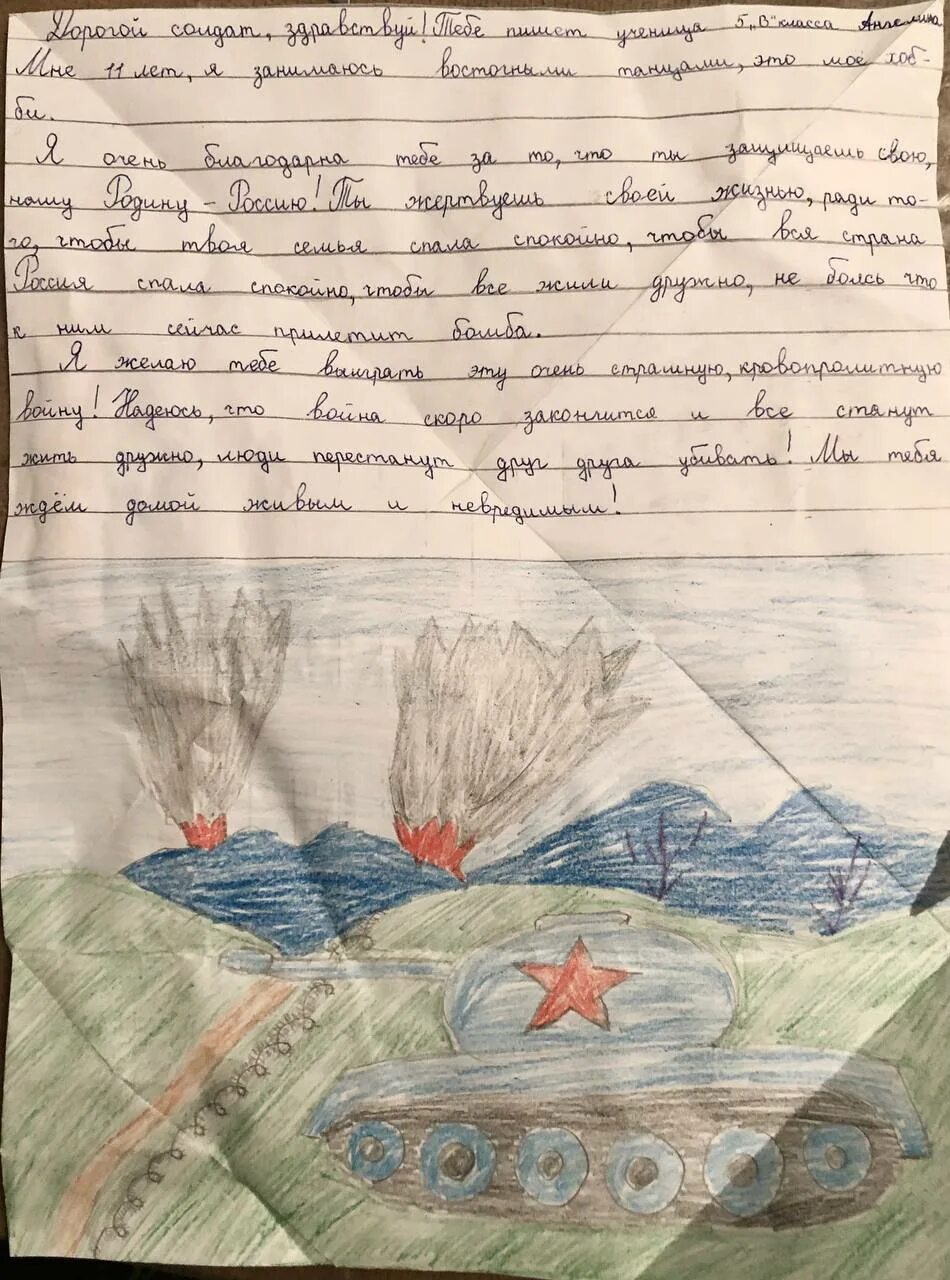 Дорогой солдат, здравствуй! Тебе пишет ученица 5 „В" класса Ангелина
Мне 11 лет, я занимаюсь восточными танцами, это моё хоб-
би.
Я очень благодарна тебе за то, что ты защищаешь свою,
нашу Родину - Россию! Ты жертвуешь своей жизнью, ради то-
го, чтобы твоя семья спала спокойно, чтобы вся страна
Россия спала спокойно, чтобы все жили дружно, не боясь что
к ним сейчас прилетит бомба.
Я желаю тебе выиграть эту очень страшную, кровопролитную
войну! Надеюсь, что война скоро закончится и все станут
жить дружно, люди перестанут друг друга убивать! Мы тебя
ждём домой живым и невредимым!